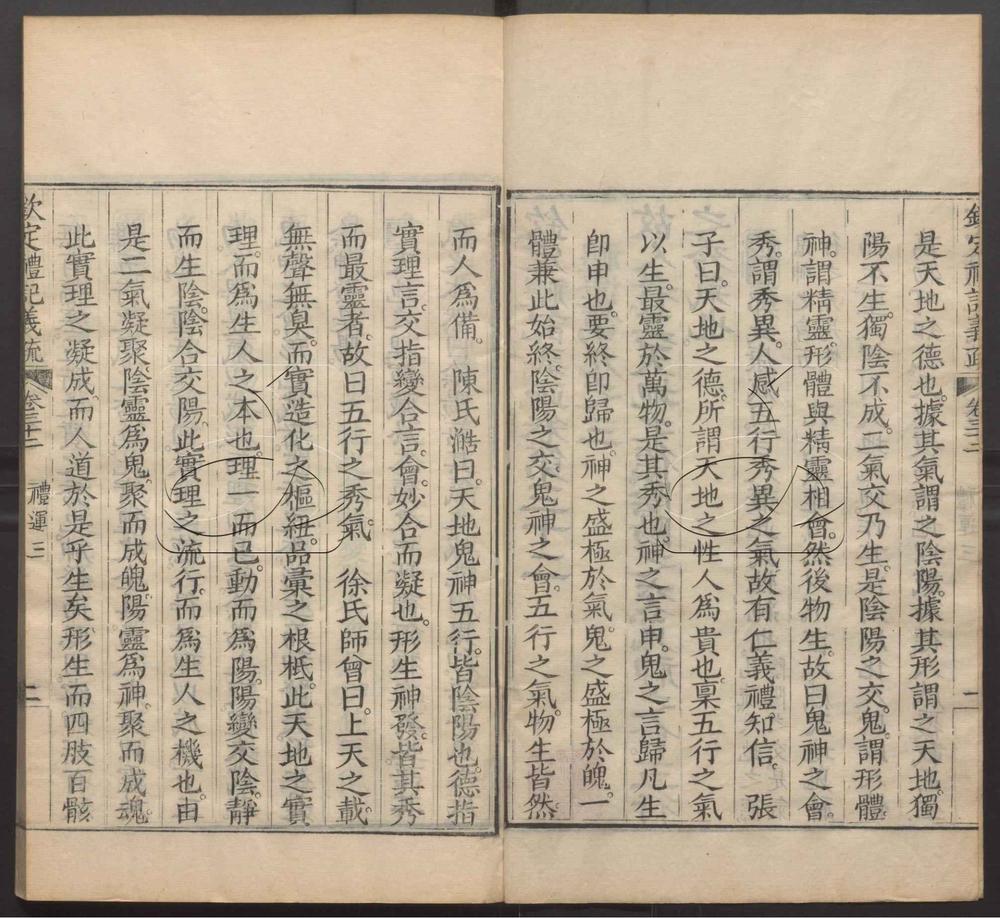 欽定禮記義疏 卷三十二
是天地之德也據其氣謂之陰陽據其形謂之天地獨
陽不生獨陰不成二氣交乃生是陰陽之交鬼謂形體
神謂精靈形體與精靈相會然後物生故曰鬼神之會
秀謂秀異人感五行秀異之氣故有仁義禮知信 張
子曰天地之德所謂天地之性人爲貴也稟五行之氣
以生最靈於萬物是其秀也神之言申鬼之言歸凡生
卽申也要終卽歸也神之盛極於氣鬼之盛極於魄一
體兼此始終陰陽之交鬼神之會五行之氣物生皆然
而人爲備 陳氏澔曰天地鬼神五行皆陰陽也德指
實理言交指變合言會妙合而凝也形生神發皆其秀
而最靈者故曰五行之秀氣 徐氏師曾曰上天之載
無聲無臭而實造化之樞紐品彙之根柢此天地之實
理而爲生人之本也理一而已動而爲陽陽變交陰靜
而生陰陰合交陽此實理之流行而爲生人之機也由
是二氣凝聚陰靈爲鬼聚而成魄陽靈爲神聚而成魂
此實理之凝成而人道於是乎生矣形生而四肢百骸
欽定禮記義疏 卷三十二 禮運三 二